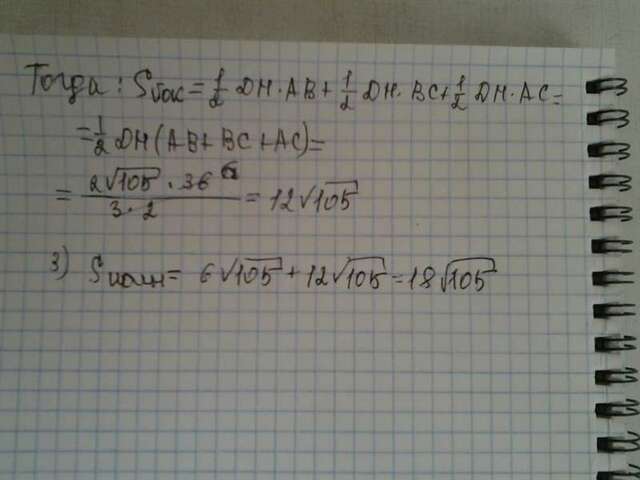 Тогда: Sбок = 1/2 DH·AB + 1/2 DH·BC + 1/2 DH·AC =
= 1/2 DH(AB + BC + AC) =
= 2√105 · 36 6 / 3·2 = 12√105
3) Sполн = 6√105 + 12√105 = 18√105